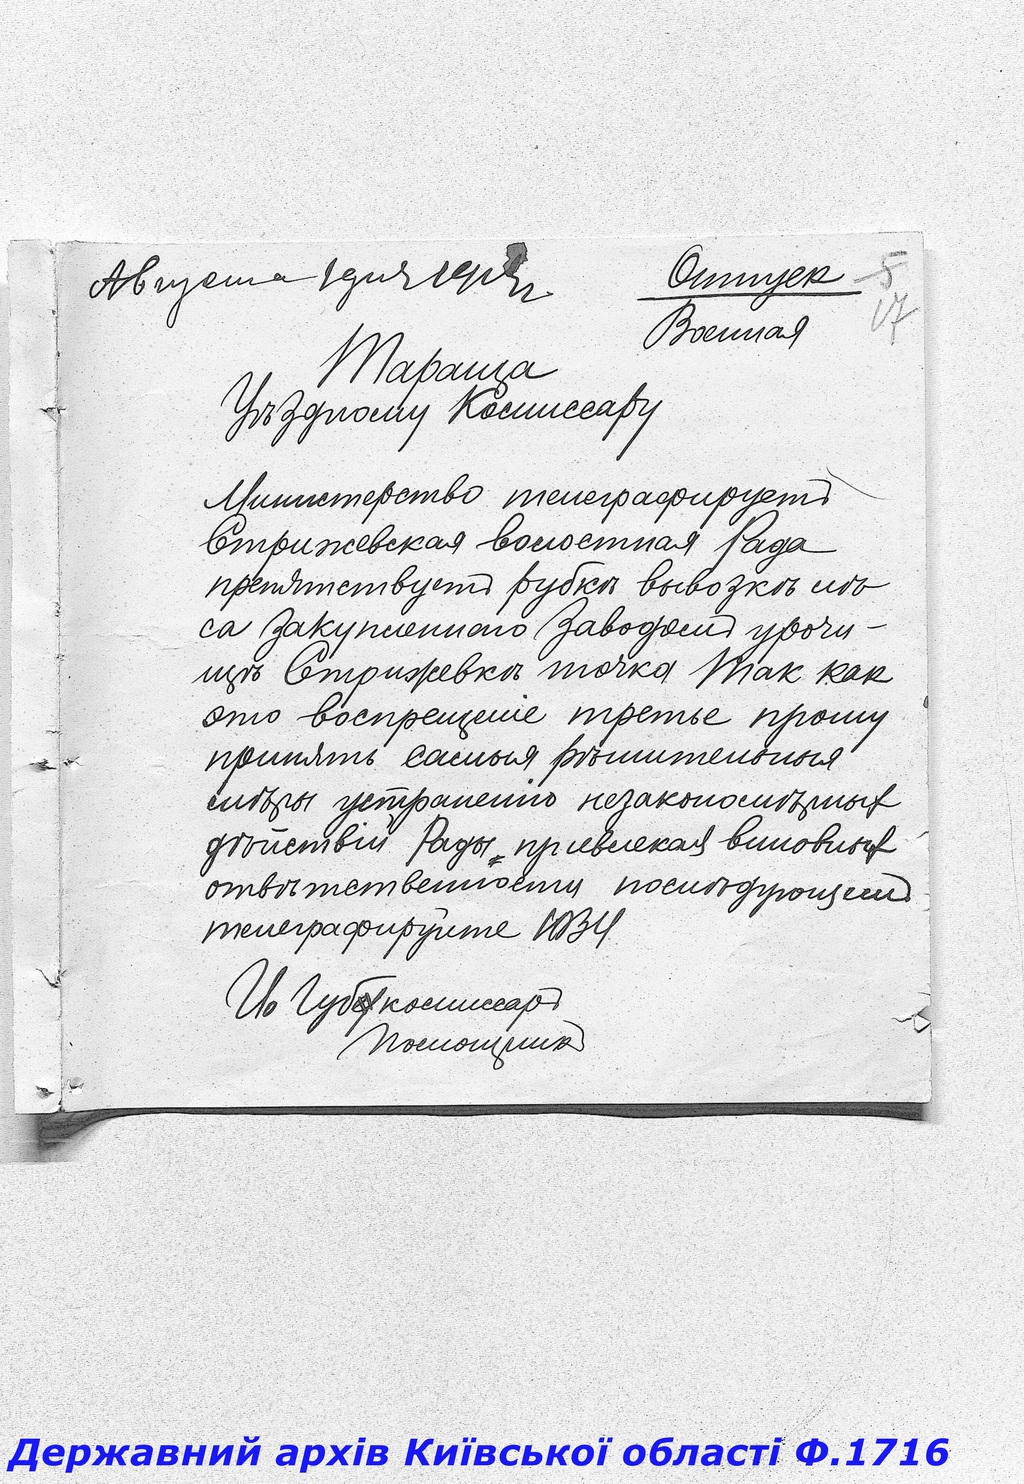 Августа 1 дня 191 г.
Отпуск
5
17
Военная
Тараща
Уѣздному Комиссару
Министерство телеграфируетъ
Стрижевская волостная Рада
препятствуетъ рубкѣ вывозкѣ лѣ-
са закупленнаго Заводомъ урочи-
щѣ Стрижевкѣ точка Так как
это воспрещеніе третье прошу
принять самыя рѣшительныя
мѣры устраненію незакономѣрных
дѣйствій Рады привлекая виновных
отвѣтственности послѣдующемъ
телеграфируйте
Ио Губ комиссаръ
Помощникъ
Державний архів Київської області Ф.1716